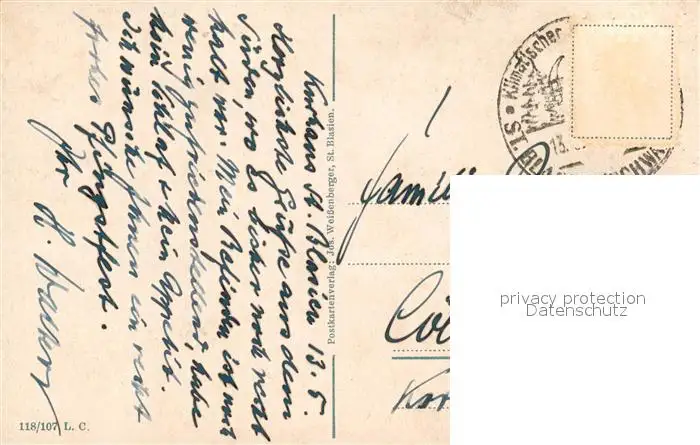 Kurhaus St. Blasien 13. 5.
Herzlichste Grüße aus dem
Süden, wo es bisher noch recht
kalt war. Mein Befinden ist noch
wenig zufriedenstellend, habe
kein Schlaf & kein Appetit.
Ich wünsche Ihnen ein recht
frohes Pfingstfest.
Ihr H.
Postkartenverlag: Jos. Weißenberger, St. Blasien.
118/107 L. C.
Klimatischer
ST. B
13.
SCHWA
Familie
Cöl
privacy protection
Datenschutz